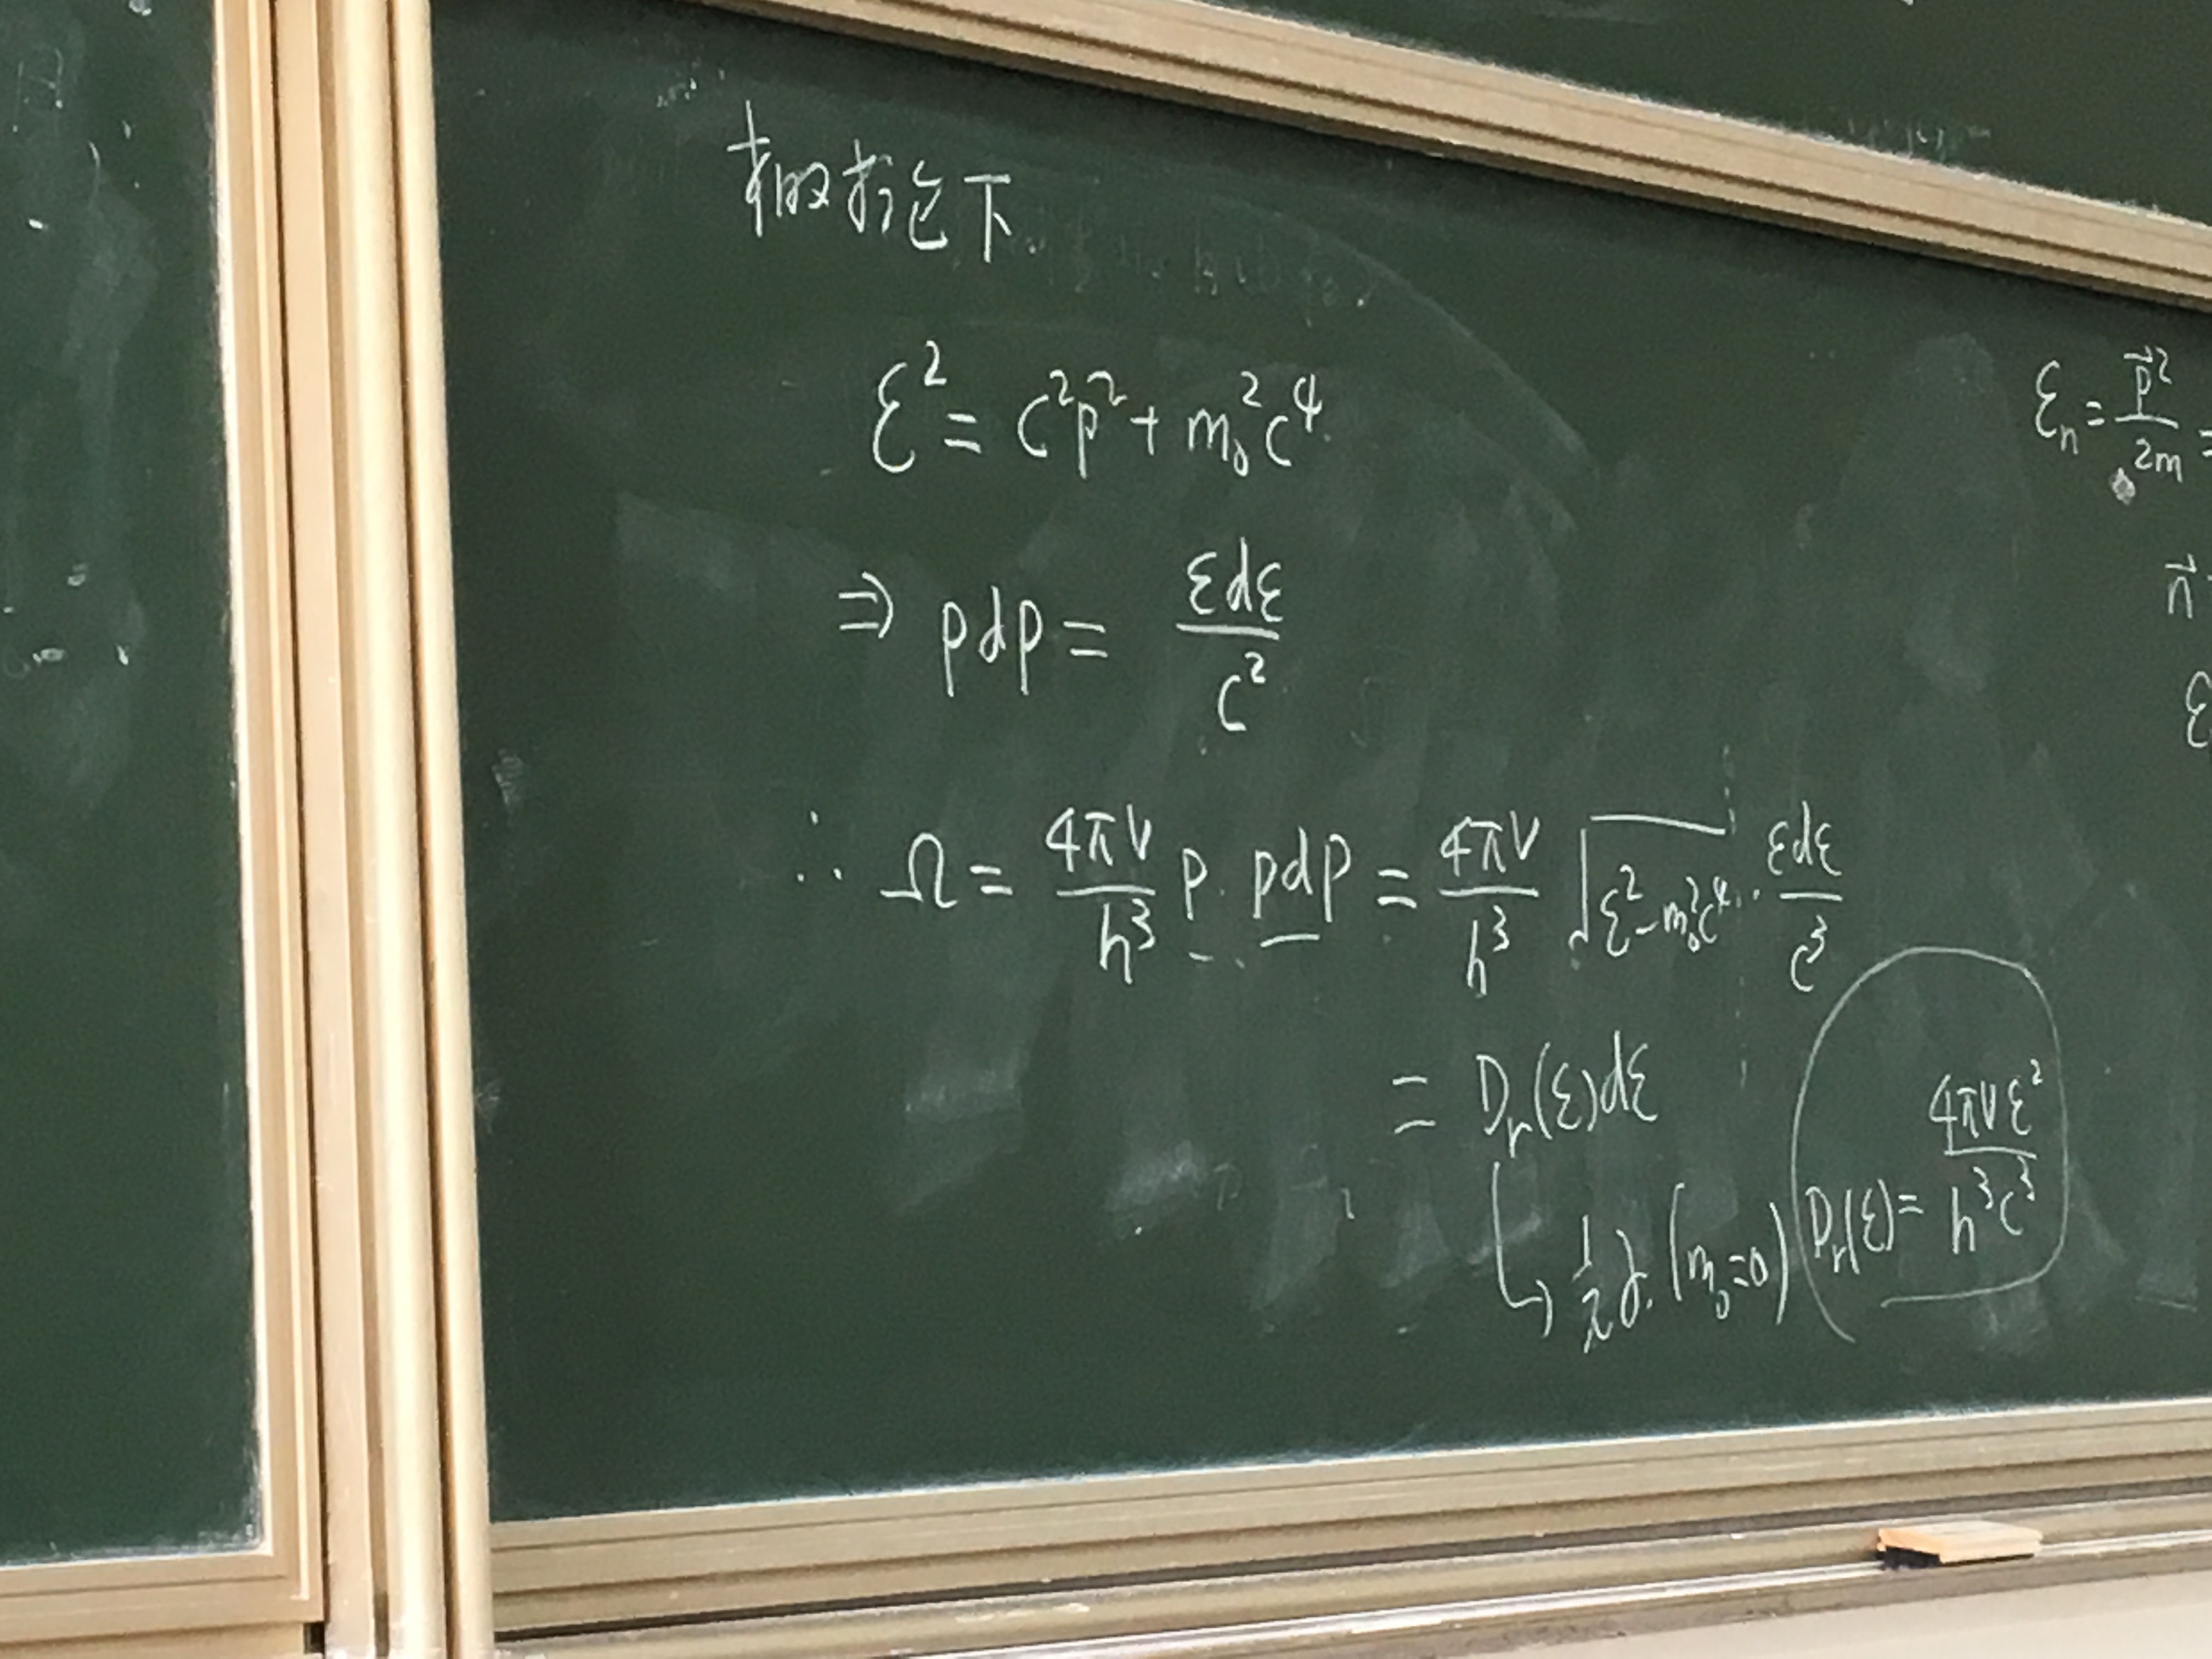 相对论下
ε² = c²p² + m₀²c⁴
⇒ pdp = εdε / c²
∴ Ω = 4πV / h³ p · pdp = 4πV / h³ √(ε² − m₀²c⁴) · εdε / c³
= Dᵣ(ε)dε
↳ (m₀=0) Dᵣ(ε) = 4πVε² / h³c³
εₙ = p⃗² / 2m =
n⃗
ε